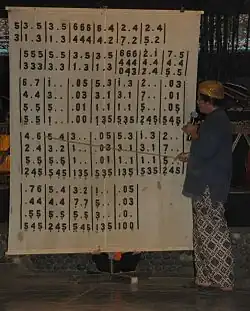 53.5 3.5 666 6.4 2.4
31.3 1.3 444 4.2 7.2 5.2
555 5.5 3.5 3.5 666 2.4 7.5
333 3.3 1.3 1.3 444 2.2 5.5
6.7 1. . .05 5.3 1.3 2. . .03
4.4 3. . .03 3.1 3.1 7. . .01
1.1 5. . .01 1.1 1.1 5. . .05
1.1 1. . .00 135 535 245 545
4.6 5.4 3. . .05 5.3 1.3 2.
2.4 3.2 1. . .03 3.1 3.1 7.
5.5 5.5 5. . .01 1.1 1.1 5. .05
245 245 135 535 135 535 245 545
.76 5.4 3.2 1. . .05
.44 4.4 7.7 5. . .03
.55 5.5 5.5 3. . .0.
545 245 545 135 100